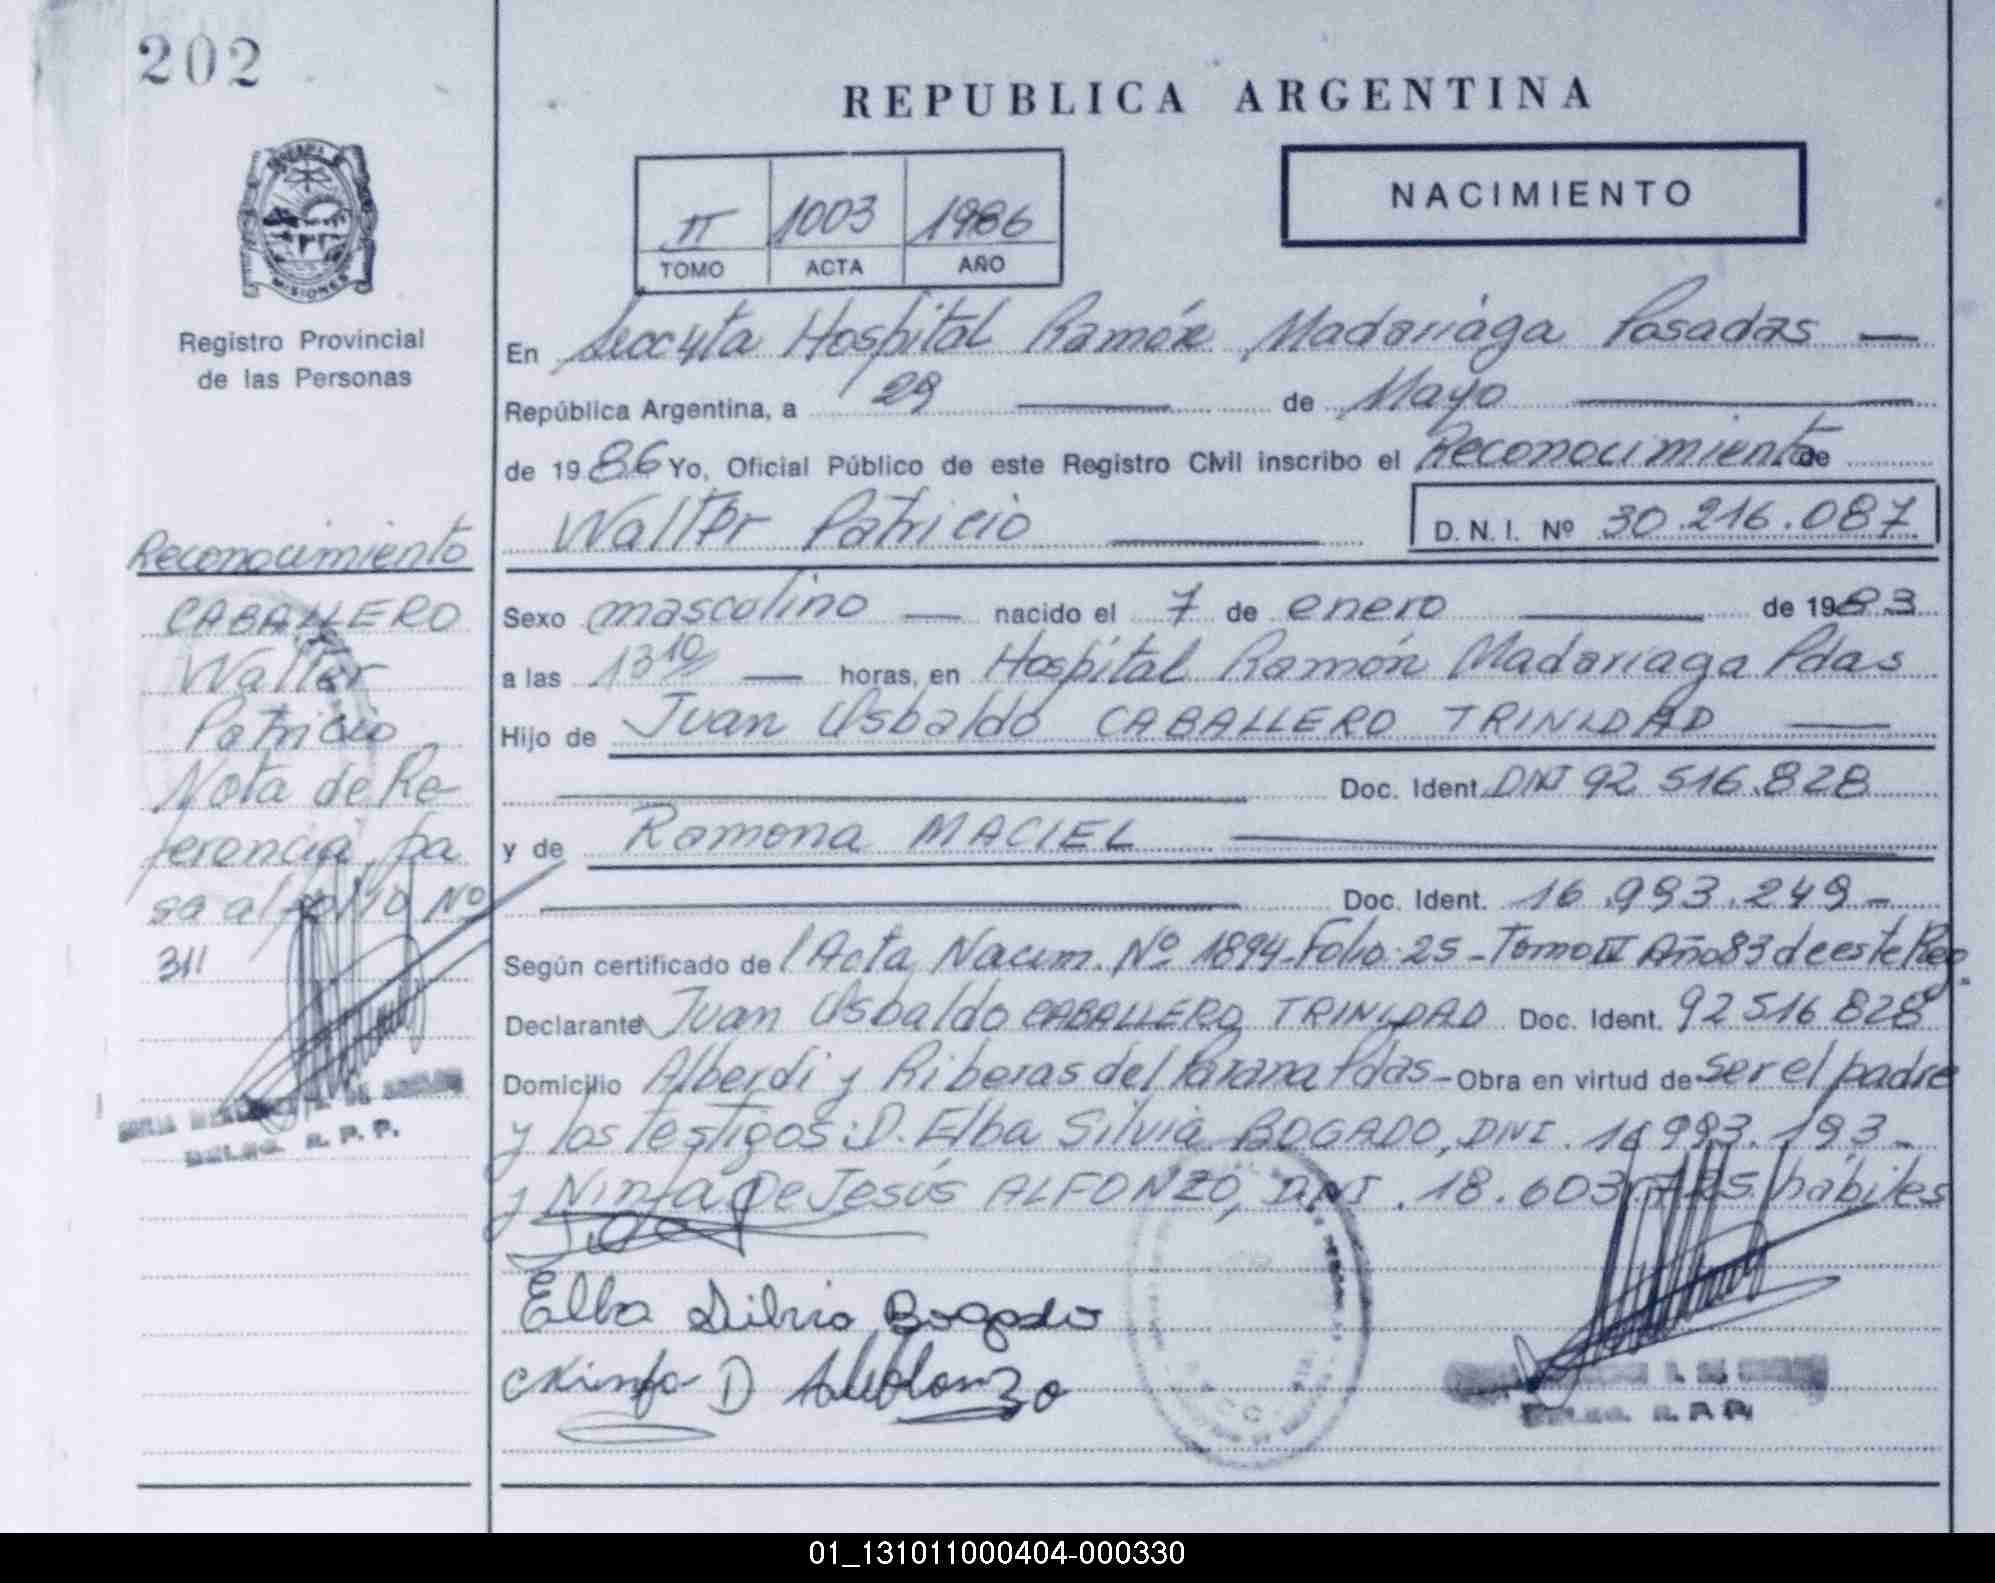 202
REPUBLICA ARGENTINA
NACIMIENTO
II 1003 1986
TOMO ACTA AÑO
MISIONES
Registro Provincial
de las Personas
En Secc 4ta Hospital Ramón Madariaga Posadas —
República Argentina, a 29 de Mayo
de 1986 Yo, Oficial Público de este Registro Civil inscribo el Reconocimiento de
Walter Patricio D.N.I. Nº 30.216.087
Reconocimiento
CABALLERO
Walter
Patricio
Nota de Re-
ferencia, pa
sa al folio Nº
311
Sexo masculino — nacido el 7 de enero de 1983
a las 13 10 — horas, en Hospital Ramón Madariaga Pdas
Hijo de Juan Osbaldo CABALLERO TRINIDAD —
Doc. Ident. DNI 92 516.828
y de Ramona MACIEL
Doc. Ident. 16.993.249 -
Según certificado de Acta Nacim. Nº 1894 - Folio: 25 - Tomo III Año 83 de este Reg.
Declarante Juan Osbaldo CABALLERO TRINIDAD Doc. Ident. 92 516 828
Domicilio Alberdi y Riberas del Parana Pdas - Obra en virtud de ser el padre
y los testigos: D. Elba Silvia BOGADO, DNI. 16 993.193 -
y Ninfa De Jesús ALFONZO, DNI. 18.603. habiles
Elba Silvia Bogado
Ninfa D Alfonzo
R. P. P.
R. P. P.
01_131011000404-000330